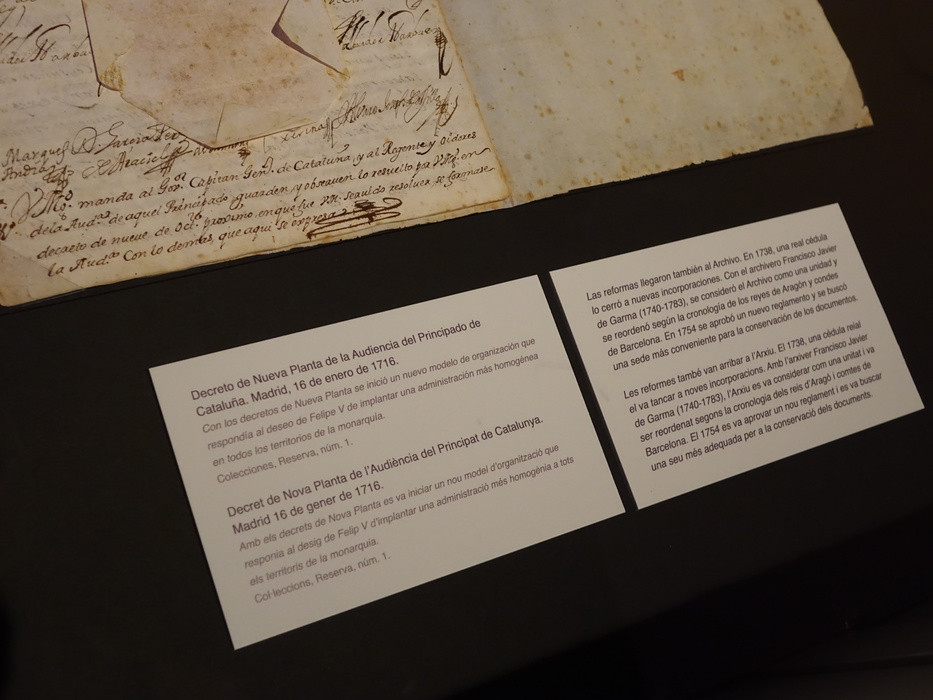 Marques
Andres
D. Garcia
S. Mg. manda al Gov.or Capitan Gen.l de Cataluña, y al Regente y Oidores
de la Aud.a de aquel Principado, guarden, y observen lo resuelto por V. Mg. en
decreto de nueve de Oct. proximo, en que fue V.M. servido resolver, se formase
la Aud.a Con lo demas, que aqui se expresa
Decreto de Nueva Planta de la Audiencia del Principado de
Cataluña. Madrid, 16 de enero de 1716.
Con los decretos de Nueva Planta se inició un nuevo modelo de organización que
respondía al deseo de Felipe V de implantar una administración más homogénea
en todos los territorios de la monarquía.
Colecciones, Reserva, núm. 1.
Decret de Nova Planta de l'Audiència del Principat de Catalunya.
Madrid 16 de gener de 1716.
Amb els decrets de Nova Planta es va iniciar un nou model d'organització que
responia al desig de Felip V d'implantar una administració més homogènia a tots
els territoris de la monarquia.
Col·leccions, Reserva, núm. 1.
Las reformas llegaron también al Archivo. En 1738, una real cédula
lo cerró a nuevas incorporaciones. Con el archivero Francisco Javier
de Garma (1740-1783), se consideró el Archivo como una unidad y
se reordenó según la cronología de los reyes de Aragón y condes
de Barcelona. En 1754 se aprobó un nuevo reglamento y se buscó
una sede más conveniente para la conservación de los documentos.
Les reformes també van arribar a l'Arxiu. El 1738, una cèdula reial
el va tancar a noves incorporacions. Amb l'arxiver Francisco Javier
de Garma (1740-1783), l'Arxiu es va considerar com una unitat i va
ser reordenat segons la cronologia dels reis d'Aragó i comtes de
Barcelona. El 1754 es va aprovar un nou reglament i es va buscar
una seu més adequada per a la conservació dels documents.